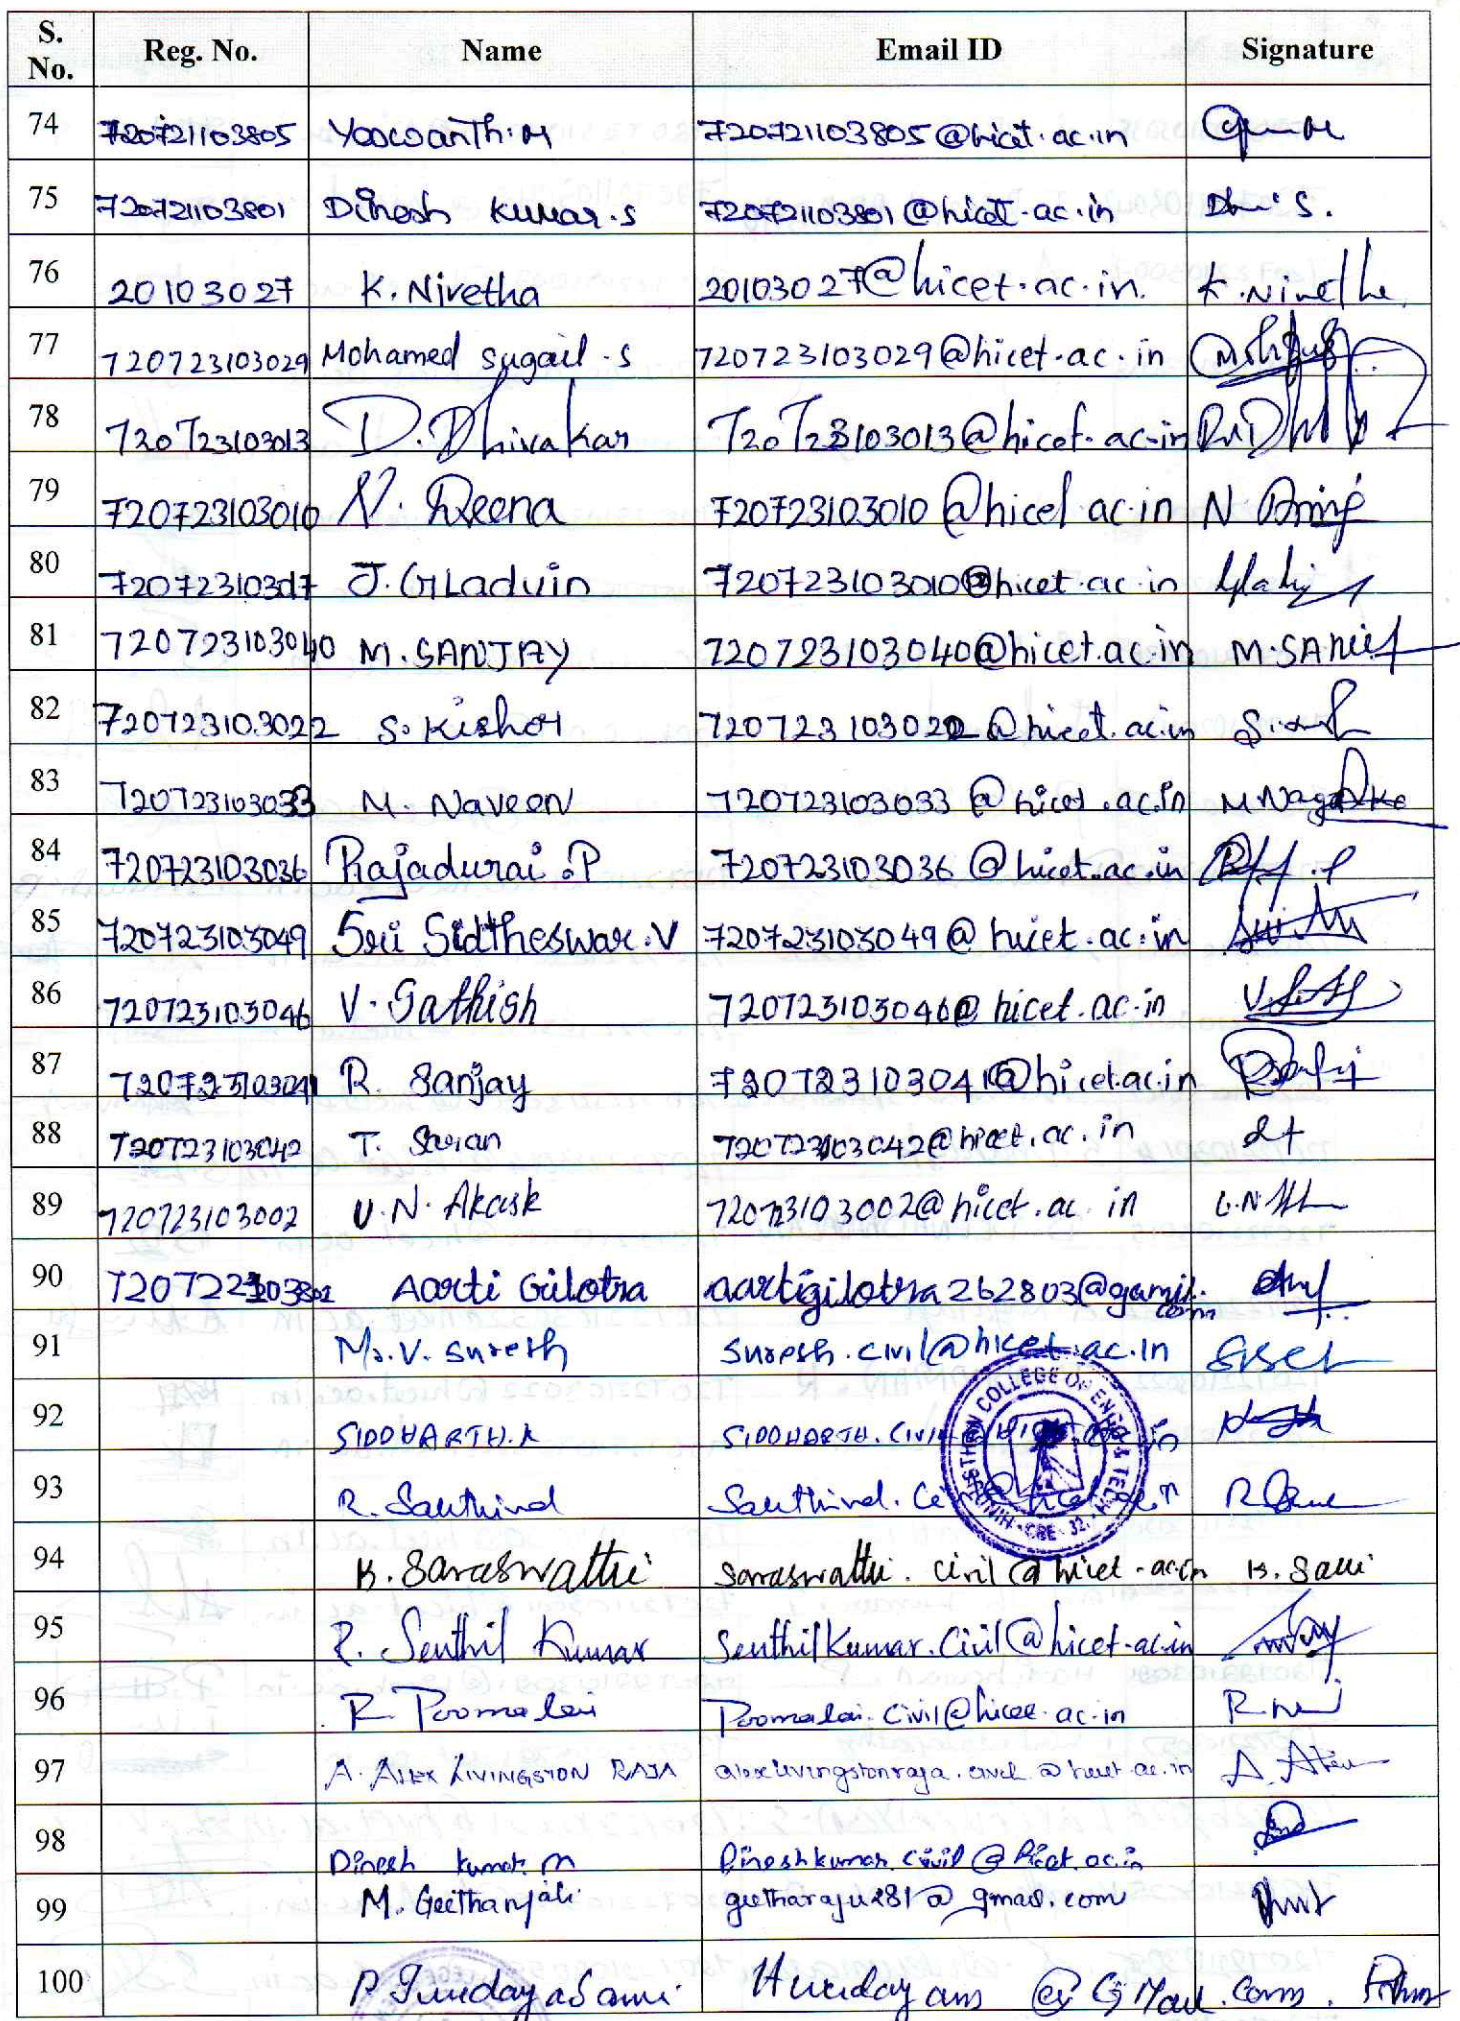 S. No. Reg. No. Name Email ID Signature
74 720721103805 Yoacoanth.M 720721103805@hicet.ac.in
75 720721103801 Dinesh Kumar.S 720721103801@hicet.ac.in
76 20103027 K. Nivetha 20103027@hicet.ac.in. K. Nivetha
77 720723103029 Mohamed Sugail.S 720723103029@hicet.ac.in
78 720723103013 D. Dhivakar 720723103013@hicet.ac.in
79 720723103010 N. Deena 720723103010@hicet.ac.in N
80 J. GLadwin 720723103010@hicet.ac.in
81 720723103040 M. SANJAY 720723103040@hicet.ac.in
82 720723103022 S. Kishor 720723103022@hicet.ac.in
83 720723103033 M. Naveen 720723103033@hicet.ac.in
84 720723103036 Rajadurai.P 720723103036@hicet.ac.in
85 720723103049 Sri Sidtheswar.V 720723103049@hicet.ac.in
86 720723103046 V. Sathish 720723103046@hicet.ac.in
87 720723103041 R. Sanjay 720723103041@hicet.ac.in
88 720723103042 T. 720723103042@hicet.ac.in
89 720723103002 U.N. Akash 720723103002@hicet.ac.in
90 Aarti Gilotra aartigilotra262803@gamil.com
91 Mr. V. Suresh suresh.civil@hicet.ac.in
92 SIDDHARTH.K SIDDHARTH.CIVIL@HICET.AC.in
93 R. R
94 K. Saraswathi saraswathi.civil@hicet.ac.in
95 R. Senthil Kumar SenthilKumar.Civil@hicet.ac.in
96 R. Poomalai Poomalai.Civil@hicet.ac.in R
97 A. ALEX LIVINGSTON RAJA alexlivingstonraja.civil@hicet.ac.in A.
98 Dinesh Kumar. M Dineshkumar.civil@hicet.ac.in
99 M. Geethanjali geetharaju281@gmail.com
100 P @GMail.com.